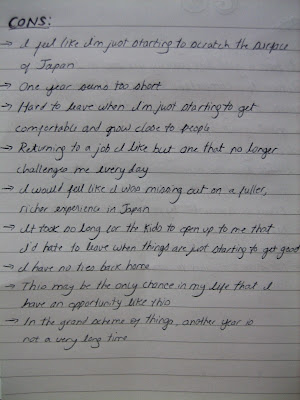 CONS:
→ I feel like I'm just starting to scratch the surface
of Japan
→ One year seems too short
→ Hard to leave when I'm just starting to get
comfortable and grow close to people
→ Returning to a job I like but one that no longer
challenges me everyday
→ I would feel like I was missing out on a fuller,
richer experience in Japan
→ It took so long for the kids to open up to me that
I'd hate to leave when things are just starting to get good
→ I have no ties back home
→ This may be the only chance in my life that I
have an opportunity like this
→ In the grand scheme of things, another year is
not a very long time